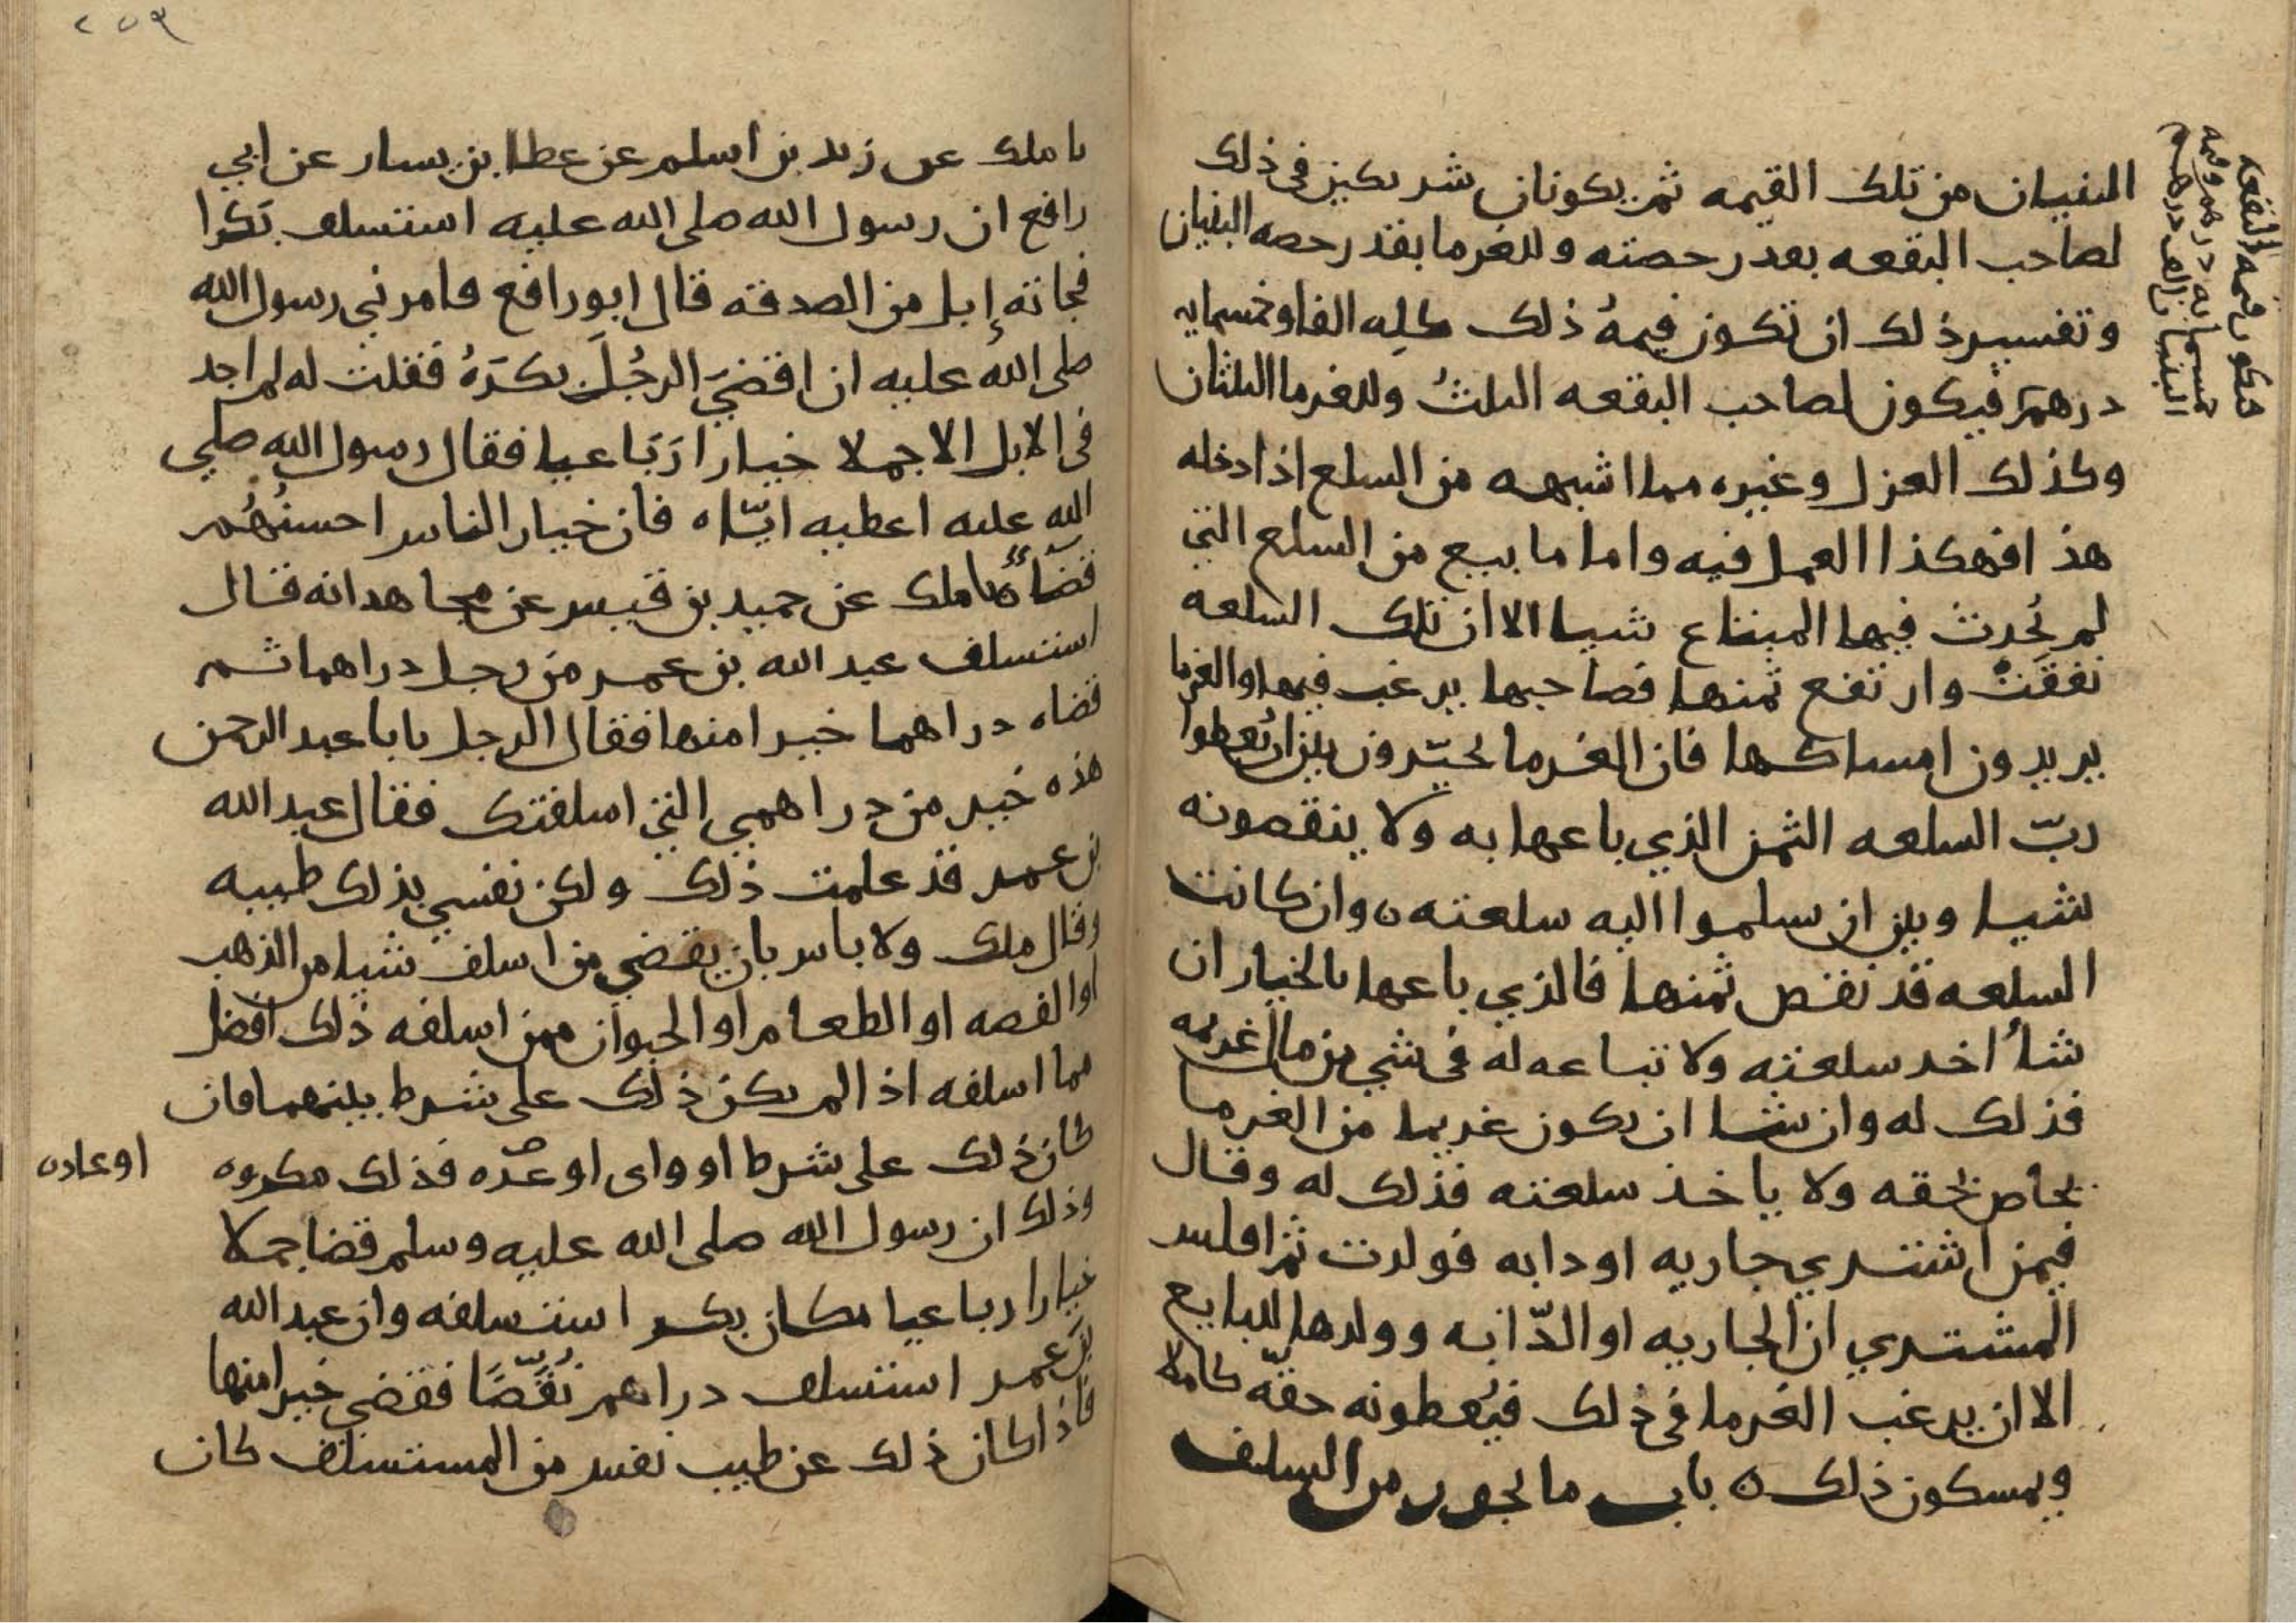 البنيان من تلك القيمه ثم يكونان شريكين في ذلك
لصاحب البقعه بقدر حصته وللغرما بقدر حصه البنيان
وتفسير ذلك ان تكون قيمهُ ذلك كلِه الفا وخمسمايه
درهمٍ فيكون لصاحب البقعه الثلثُ وللغرما الثلثان
وكذلك الغزل وغيره مما اشبهه من السلع اذا دخله
هذا فهكذا العمل فيه واما ما بيع من السلع التي
لم يُحدث فيها المبتاع شيا الا ان تلك السلعه
نفقَتْ وارتفع ثمنها فصاحبها يرغب فيها والغرما
يريدون امساكها فان الغرما يخيّرون بين ان يُعطوا
ربّ السلعه الثمن الذي باعها به ولا ينقصونه
شيا وبين ان يسلموا اليه سلعته ه وان كانت
السلعه قد نقص ثمنها فالذي باعها بالخيار ان
شاُ اخد سلعته ولا تباعه له في شي من مال غريمه
فذلك له وان شا ان يكون غريما من الغرما
يحاص بحقه ولا ياخذ سلعته فذلك له وقال
فيمن اشتري جاريه او دابه فولدت ثم افلس
المشتري ان الجاريه او الدّابه وولدها للبايع
الا ان يرغب الغرما في ذلك فيُعطونه حقّه كاملا
ويمسكون ذلك ه باب ما يجوز من السلف
فتكون قيمه البقعه
خمسمايه درهم وقيمه
البنيان الف درهم
٢٥٩
نا ملك عن زيد بن اسلم عن عطا بن يسار عن ابي
رافع ان رسول الله صلى الله عليه استسلف بَكرا
فجاته إبل من الصدقه قال ابو رافع فامرني رسول الله
صلى اللهُ عليه ان اقضيَ الرجُلَ بكرَهُ فقلت له لم اجد
في الابل الا جملا خيارا رَبَاعيا فقال رسول الله صلي
الله عليه اعطيه ايّاه فان خيار الناس احسنُهُم
قضاءً ه نا ملك عن حميد بن قيس عن مجاهد انه قال
استسلف عبد الله بن عمر من رجل دراهما ثم
قضاه دراهما خيرا منها فقال الرجل يابا عبد الرحمن
هذه خير من دراهمي التي اسلفتك فقال عبد الله
بن عمر قد علمت ذلك ولكن نفسي بذلك طيبه
وقال ملك ولا باس بان يقضي من اسلف شيا من الذهب
او الفضه او الطعام او الحيوان ممن اسلفه ذلك افضل
مما اسلفه اذا لم يكن ذلك على شرط بينهما فان
كان ذلك على شرط او واى او عدّه فذلك مكروه
او عاده
وذلك ان رسول الله صلى الله عليه وسلم قضا جملا
خيارا رباعيا مكان بكر استسلفه وان عبد الله
بن عمر استسلف دراهم نُقَّصًا فقضي خيرا منها
فاذا كان ذلك عن طيب نفس من المستسلف كان